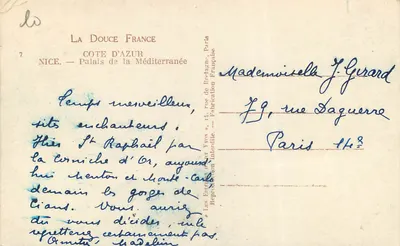 LA DOUCE FRANCE
CÔTE D'AZUR
NICE. — Palais de la Méditerranée
Temps merveilleux,
sites enchanteurs.
Hier St Raphaël par
la Corniche d'Or, aujourd'
hui Menton et Monte-Carlo
demain les gorges de
Cians. Vous auriez
dû vous décider, 
regretterez certainement pas.
Amitiés, Madeleine
Mademoiselle J. Girard
79, rue Daguerre
Paris 14e